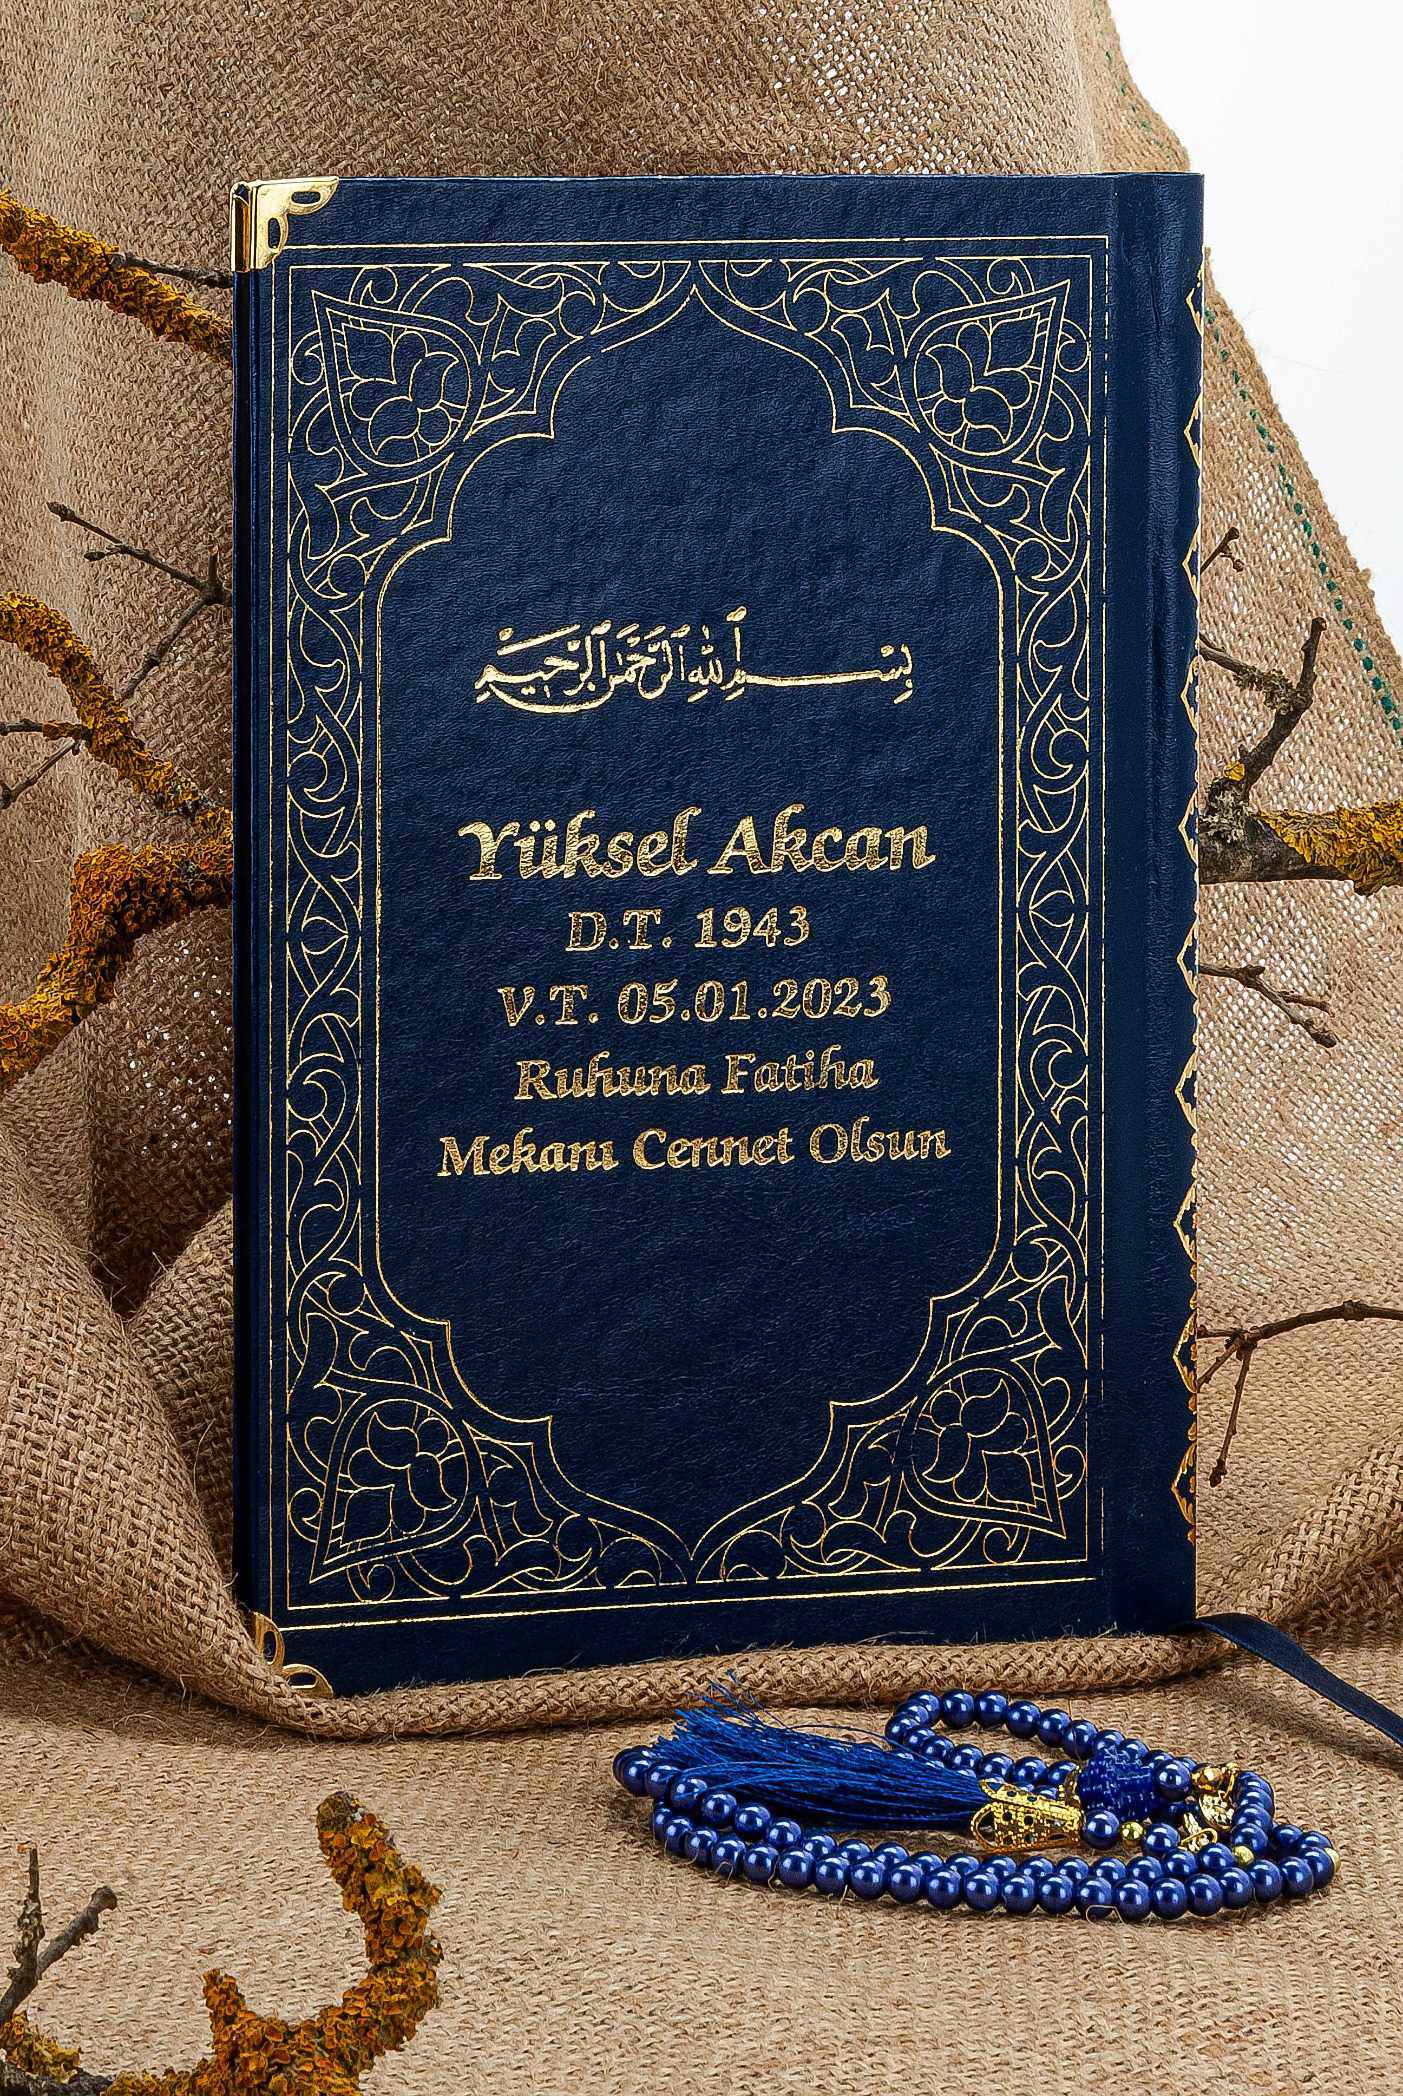 بسم الله الرحمن الرحيم
Yüksel Akcan
D.T. 1943
V.T. 05.01.2023
Ruhuna Fatiha
Mekanı Cennet Olsun